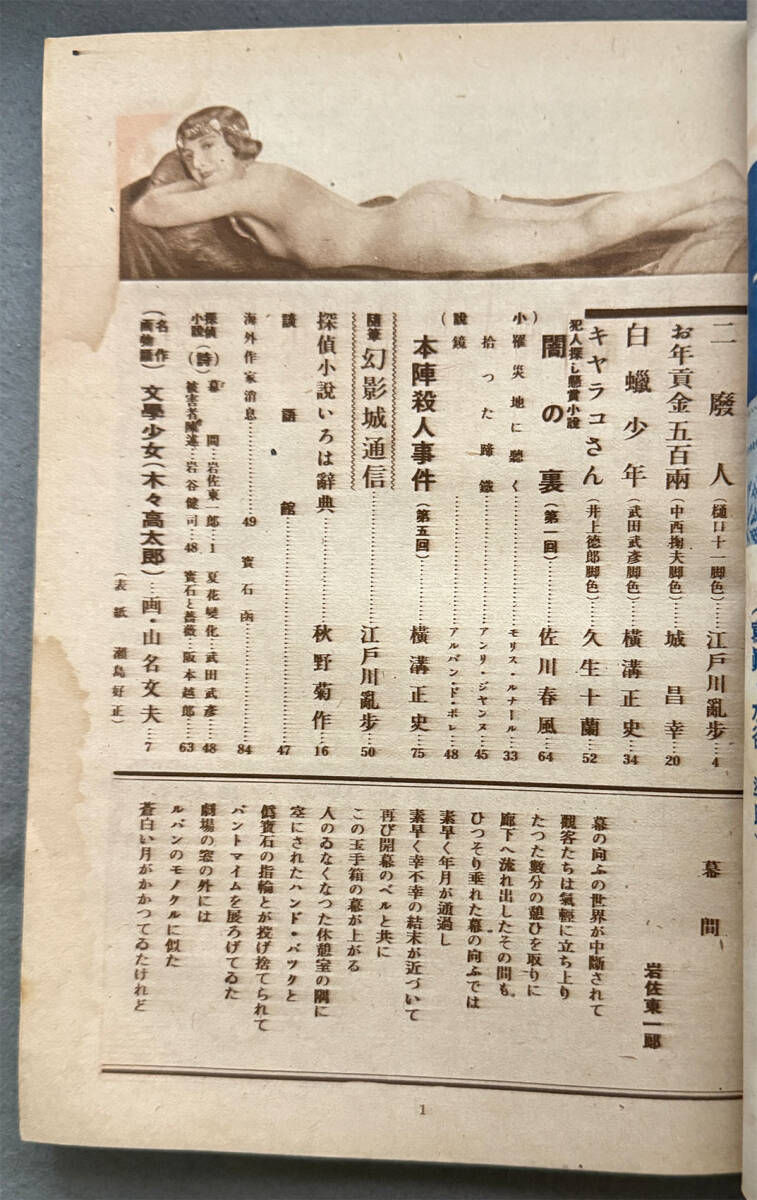 二廢人(樋口十一脚色)……江戸川亂歩…4
お年貢金五百兩(中西掬夫脚色)…城昌幸…20
白蠟少年(武田武彦脚色)…橫溝正史…34
犯人探し懸賞小説
キヤラコさん(井上德郎脚色)…久生十蘭…52
闇の裏(第一回)……佐川春風…64
(小説)
罹災地に聽く……モリス・ルナール…33
拾つた蹄鐵……アンリ・ジヤンヌ…45
鏡……アルバン・ド・ポレ…48
本陣殺人事件(第五回)……橫溝正史…75
隨筆 幻影城通信……江戸川亂歩…50
探偵小説いろは辭典……秋野菊作…16
談語館……47
海外作家消息……49 寶石函……84
探偵小説(詩)
幕間…岩佐東一郎…1 夏花變化…武田武彦…48
被害者陳述…岩谷健司…48 寶石と薔薇…阪本越郎…63
(名作画物語)文學少女(木々高太郎)…画・山名文夫…7
(表紙 瀬島好正)
幕間
岩佐東一郎
幕の向ふの世界が中斷されて
觀客たちは氣輕に立ち上り
たつた數分の憩ひを取りに
廊下へ流れ出したその間も
ひつそり垂れた幕の向ふでは
素早く年月が通過し
素早く幸不幸の結末が近づいて
再び開幕のベルと共に
この玉手箱の幕が上がる
人のゐなくなつた休憩室の隅に
空にされたハンド・バツクと
僞寶石の指輪とが投げ捨てられて
パントマイムを展ろげてゐた
劇場の窓の外には
ルパンのモノクルに似た
蒼白い月がかかつてゐたけれど
1